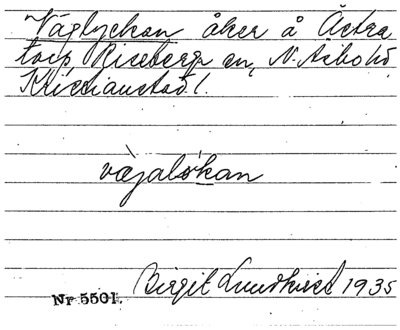 Väglyckan åker å Östra
torp Riseberga sn, N. Åsbo hd
Kristianstad l.
vægalỳkan
Birgit Lundkvist 1935
Nr 5501.